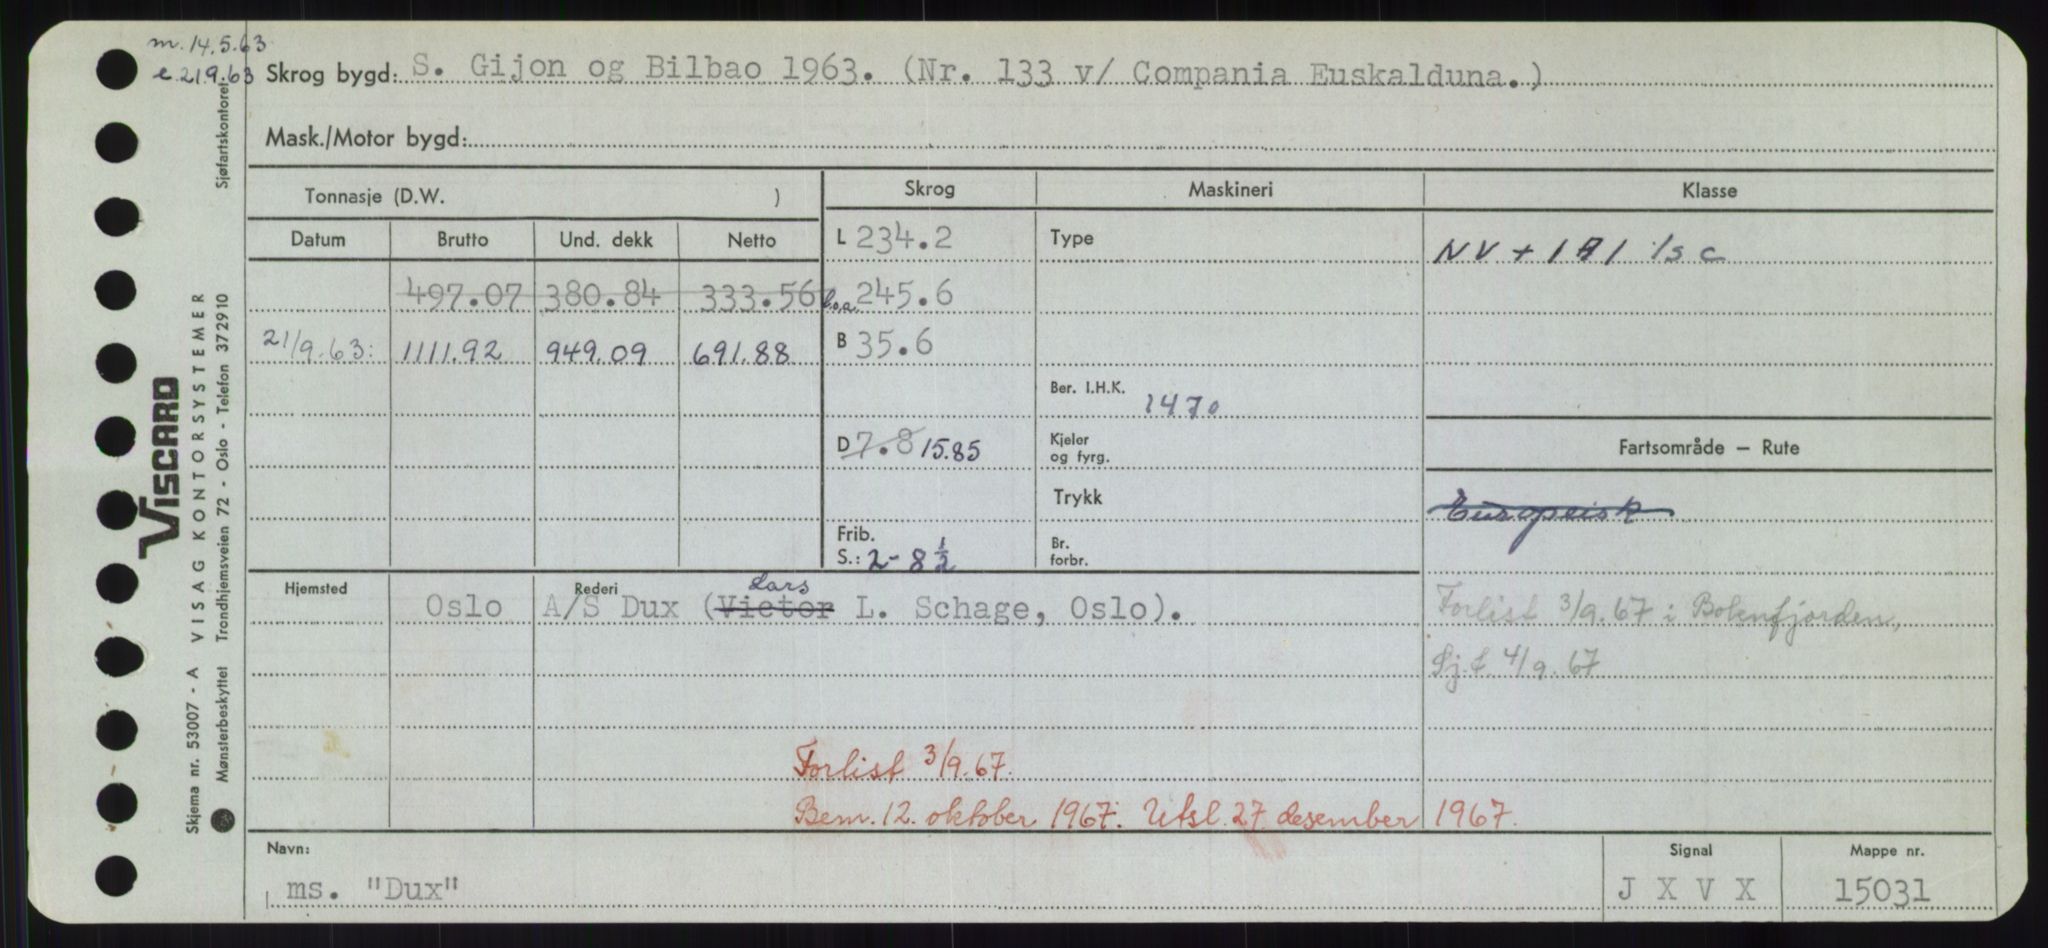 m. 14.5.63
e 21.9.63
Skrog bygd: S. Gijon og Bilbao 1963. (Nr. 133 v/ Compania Euskalduna.)
Mask./Motor bygd:
Tonnasje (D.W. )
Skrog Maskineri Klasse
Datum Brutto Und. dekk Netto
L 234.2 Type NV + 1A1 Is C
497.07 380.84 333.56 l.o.a. 245.6
21/9.63: 1111.92 949.09 691.88 B 35.6
Ber. I.H.K. 1470
D 7.8 15.85 Kjeler og fyrg. Fartsområde — Rute
Trykk Europeisk
Frib. S.: 2-8 1/2 Br. forbr.
Hjemsted Rederi Lars
Oslo A/S Dux (Victor L. Schage, Oslo).
Forlist 3/9.67 i Boknfjorden,
Sj.f. 4/9.67
Forlist 3/9.67.
Bem. 12. oktober 1967. Utsl. 27. desember 1967.
Navn: Signal Mappe nr.
ms. "Dux" J X V X 15031
Skjema nr. 53007 - A VISAG KONTORSYSTEMER
Mønsterbeskyttet Trondhjemsveien 72 - Oslo - Telefon 372910
Sjøfartskontoret
VISCARD